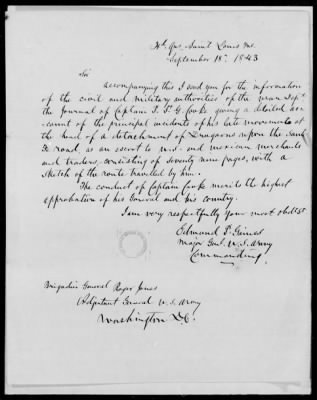 Hd. Qrs. Saint Louis Mo.
September 18th 1843
Sir
Accompanying this I send you for the information
of the civil and military authorities of the War Dept
the Journal of Captain P. St. G. Cooke giving a detailed ac-
count of the principal incidents of his late movements at
the head of a detachment of Dragoons upon the Santa
Fe road, as an escort to and mexican merchants
and traders, consisting of seventy nine pages, with a
sketch of the route travelled by him.
The conduct of Captain Cooke merits the highest
approbation of his General and his country.
I am very respectfully your most obdt St
Edmund P. Gaines
Major Genl. U.S. Army
Commanding.
Brigadier General Roger Jones
Adjutant General U.S. Army
Washington D.C.